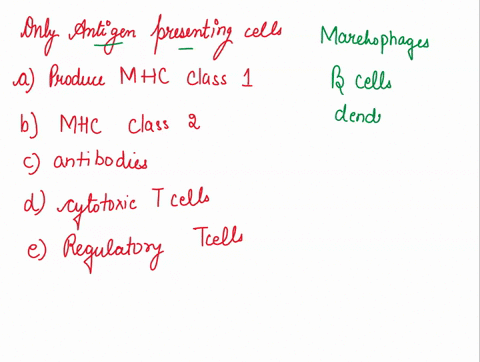 Only Antigen presenting cells
a) Produce MHC class 1
b) MHC class 2
c) antibodies
d) cytotoxic T cells
e) Regulatory Tcells
Marehophages
B cells
dend